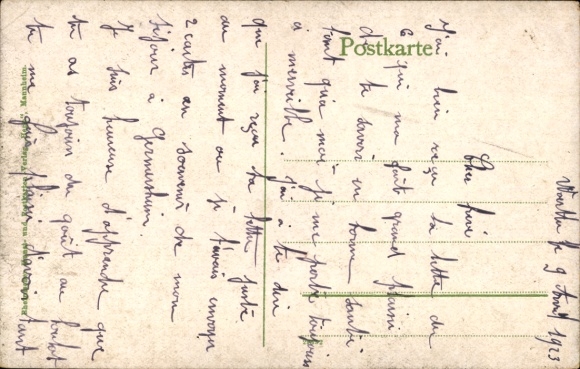 Postkarte
le 9 Avril 1923
J'ai bien reçu ta lettre du
6 qui m'a fait grand plaisir
de te savoir en bonne santé
tant qu'à moi je me porte toujours
à merveille. j'ai à te dire
que j'ai reçu ta lettre juste
au moment où je t'avais envoyé
2 cartes en souvenir de mon
séjour à Germersheim.
Je suis heureuse d'apprendre que
tu as toujours du goût au boulot
tu me plaisir d'avoir tant
Mannheim.